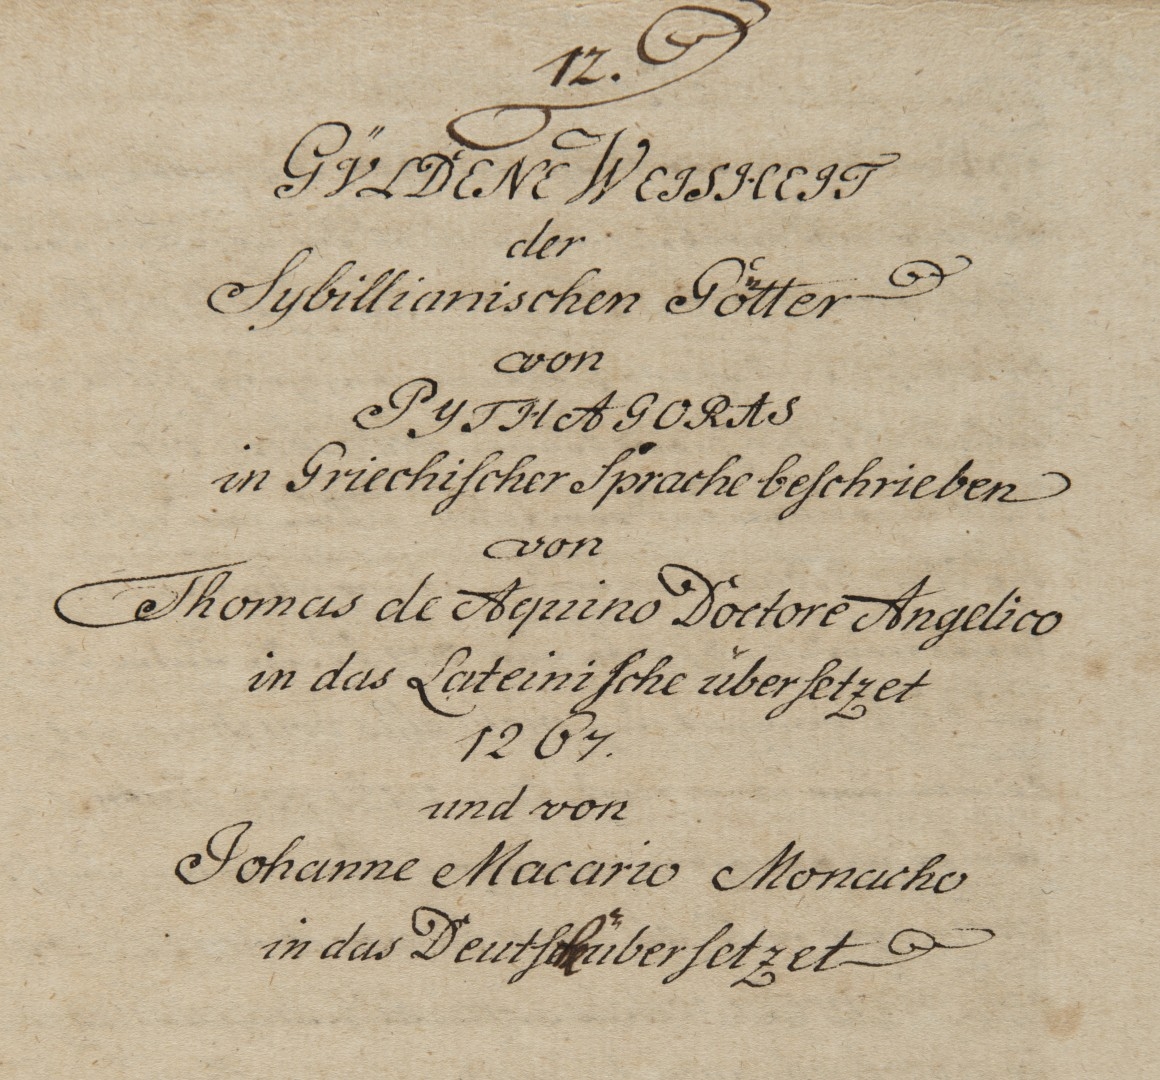 12.
GÜLDENE WEISHEIT
der
Sybillianischen Götter
von
PYTHAGORAS
in Griechiſcher Sprache beſchrieben
von
Thomas de Aquino Doctore Angelico
in das Lateiniſche überſetzet
1267.
und von
Johanne Macario Monacho
in das Deutſche überſetzet